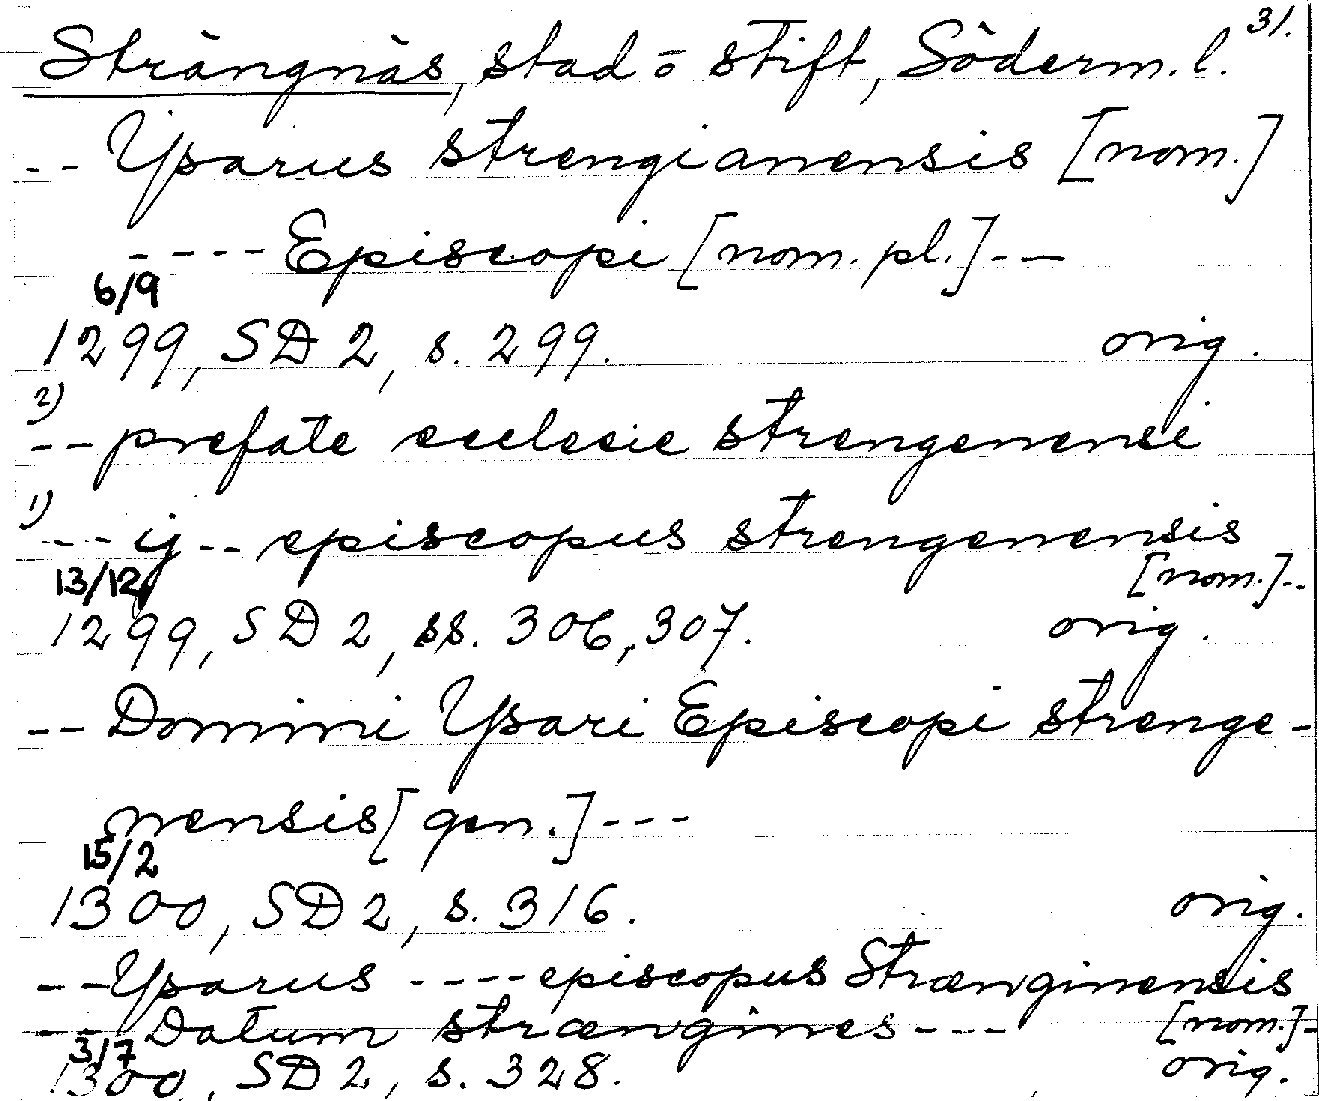 31.
Strängnäs, stad o stift, Söderm. l.
-- Ysarus strengianensis [nom.]
---- Episcopi [nom. pl.] --
6/9
1299, SD 2, s. 299. orig.
2)
-- prefate ecclecie strengenensi
1)
--- ij -- episcopus strengenensis
[nom.]--
13/12
1299, SD 2, ss. 306, 307. orig.
-- Domini Ysari Episcopi strenge-
nensis [gen.] ---
15/2
1300, SD 2, s. 316. orig.
-- Ysarus ---- episcopus Strænginensis
-- Datum strængines --- [nom.]-
3/7
1300, SD 2, s. 328. orig.